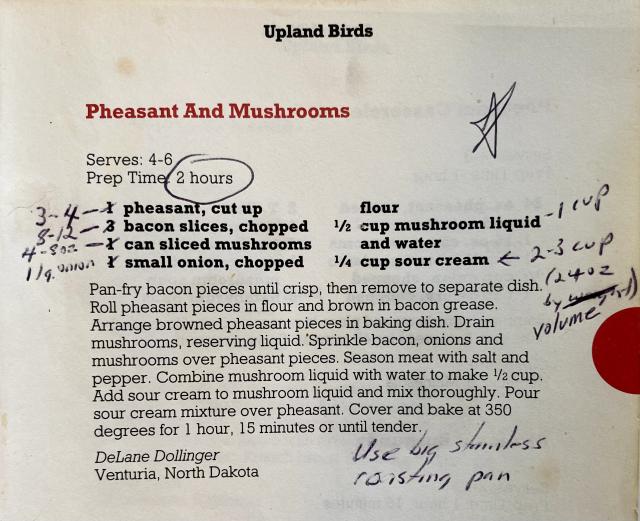 Upland Birds
Pheasant And Mushrooms
Serves: 4-6
Prep Time: 2 hours
3-4 — 1 pheasant, cut up
8-12 — 3 bacon slices, chopped
4-8oz — 1 can sliced mushrooms
1 lg. onion 1 small onion, chopped
flour
½ cup mushroom liquid - 1 cup
and water
¼ cup sour cream ← 2-3 cup
(24oz
by
volume
Pan-fry bacon pieces until crisp, then remove to separate dish.
Roll pheasant pieces in flour and brown in bacon grease.
Arrange browned pheasant pieces in baking dish. Drain
mushrooms, reserving liquid. Sprinkle bacon, onions and
mushrooms over pheasant pieces. Season meat with salt and
pepper. Combine mushroom liquid with water to make ½ cup.
Add sour cream to mushroom liquid and mix thoroughly. Pour
sour cream mixture over pheasant. Cover and bake at 350
degrees for 1 hour, 15 minutes or until tender.
DeLane Dollinger
Venturia, North Dakota
Use big stainless
roasting pan